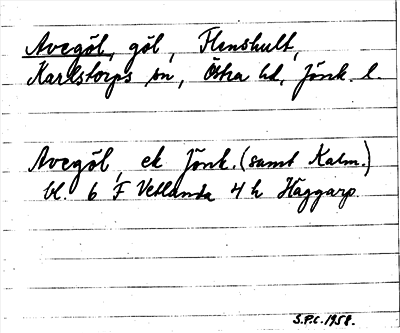 Avegöl, göl, Flenshult,
Karlstorps sn, Östra hd, Jönk. l.
Avegöl, ek Jönk. (samt Kalm.)
bl. 6 F Vetlanda 4 h Haggarp.
S.P.C. 1958.